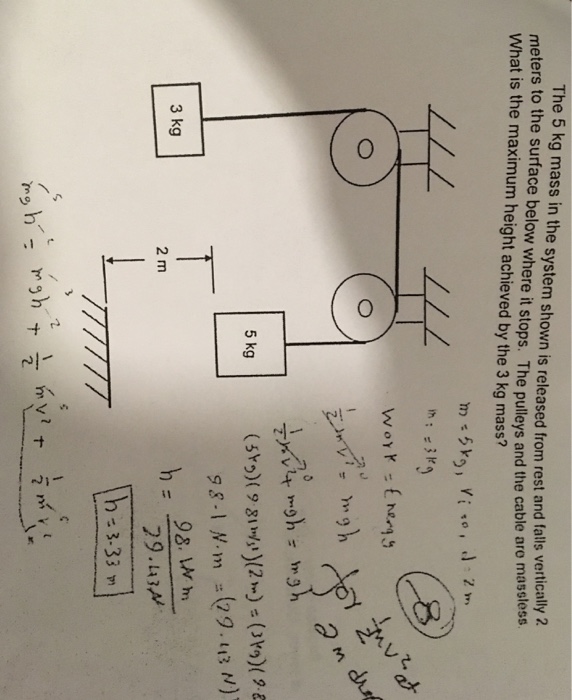 The 5 kg mass in the system shown is released from rest and falls vertically 2
meters to the surface below where it stops. The pulleys and the cable are massless.
What is the maximum height achieved by the 3 kg mass?
m = 5kg, Vi = 0, d = 2m
m = 3kg
Work = Energy
8
½mv² = mgh
for ½mv² at
2m
½mv² + mgh = mgh
(5kg)(9.81m/s²)(2m) = (3kg)(9.8
98.1 N·m = (29.43N)
h = 98.1N·m
29.43N
h = 3.33 m
3 kg
5 kg
2 m
mgh = mgh + ½mv² + ½mv²